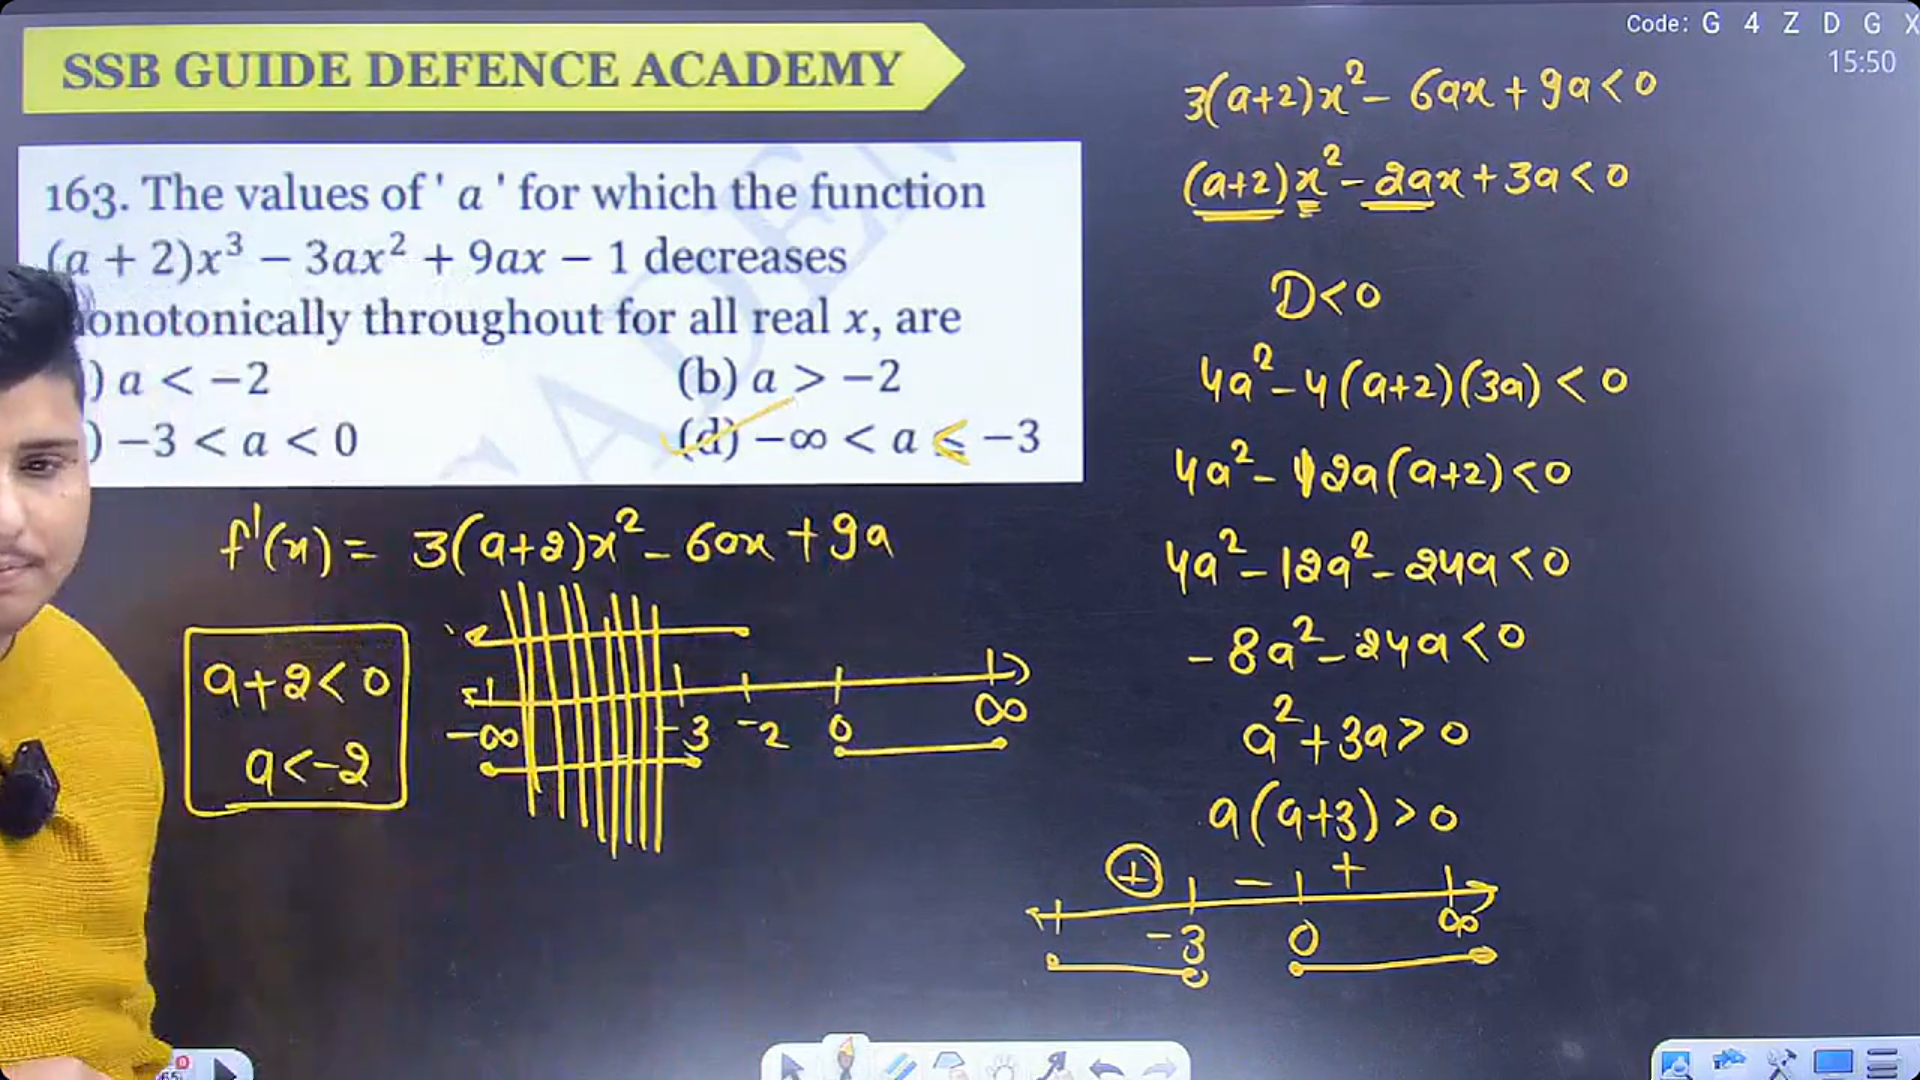 Code: G 4 Z D G X
15:50
SSB GUIDE DEFENCE ACADEMY
163. The values of ' a ' for which the function
(a + 2)x³ − 3ax² + 9ax − 1 decreases
onotonically throughout for all real x, are
) a < −2
(b) a > −2
) −3 < a < 0
(d) −∞ < a ≤ −3
f'(x) = 3(a+2)x² - 6ax + 9a
a+2<0
a<-2
-∞ -3 -2 0 ∞
3(a+2)x² - 6ax + 9a < 0
(a+2)x² - 2ax + 3a < 0
D<0
4a² - 4(a+2)(3a) < 0
4a² - 12a(a+2) < 0
4a² - 12a² - 24a < 0
-8a² - 24a < 0
a² + 3a > 0
a(a+3) > 0
+ - +
-3 0 ∞